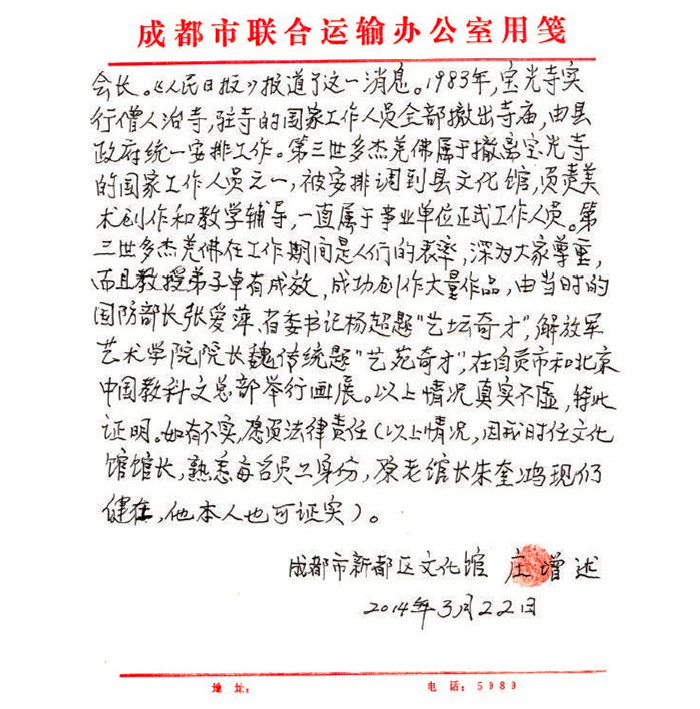 成都市联合运输办公室用笺
会长。《人民日报》报道了这一消息。1983年，宝光寺实
行僧人治寺，驻寺的国家工作人员全部撤出寺庙，由县
政府统一安排工作。第三世多杰羌佛属于撤离宝光寺
的国家工作人员之一，被安排调到县文化馆，负责美
术创作和教学辅导，一直属于事业单位正式工作人员。第
三世多杰羌佛在工作期间是人们的表率，深为大家尊重，
而且教授弟子卓有成效，成功创作大量作品，由当时的
国防部长张爱萍、省委书记杨超题“艺坛奇才”，解放军
艺术学院院长魏传统题“艺苑奇才”，在自贡市和北京
中国教科文总部举行画展。以上情况真实不虚，特此
证明。如有不实，愿负法律责任（以上情况，因我时任文化
馆馆长，熟悉每台员工身份，原老馆长朱奎鸿现仍
健在，他本人也可证实）。
成都市新都区文化馆 庄增述
2014年3月22日
地 址： 电 话：5989